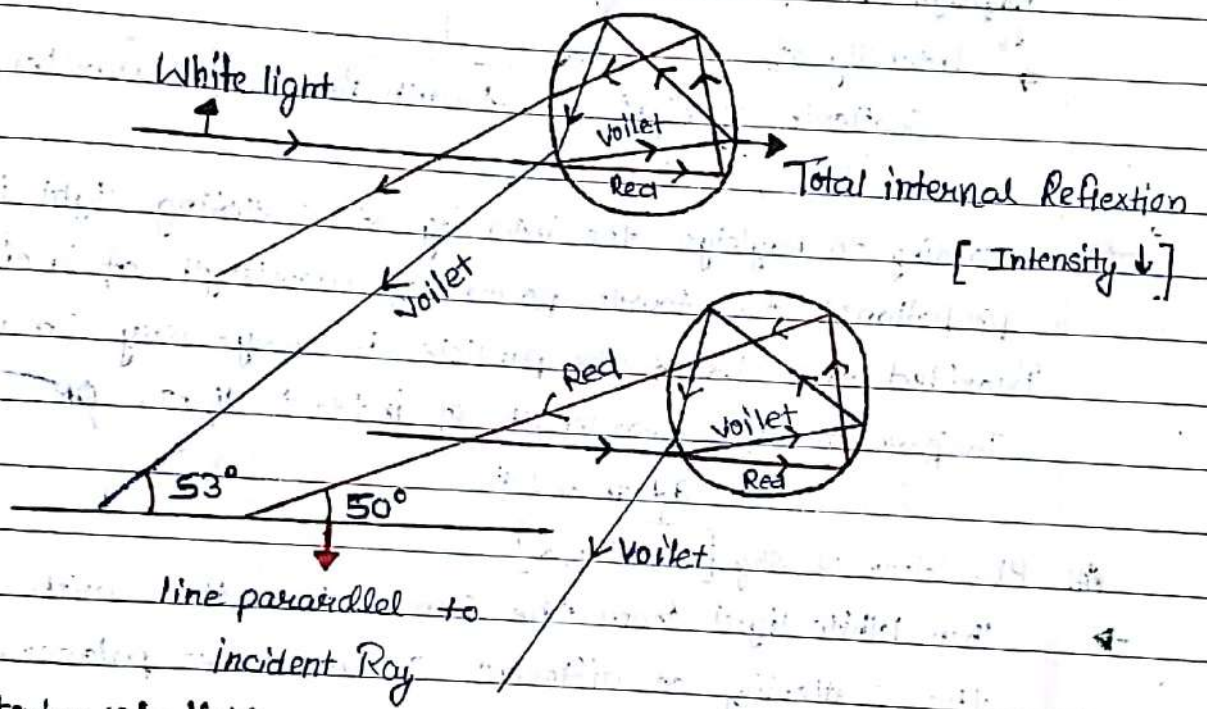 White light
Voilet
Red
Total internal Reflextion
[ Intensity ↓ ]
Voilet
Red
Voilet
Red
53°
50°
Voilet
line parardlel to
incident Ray